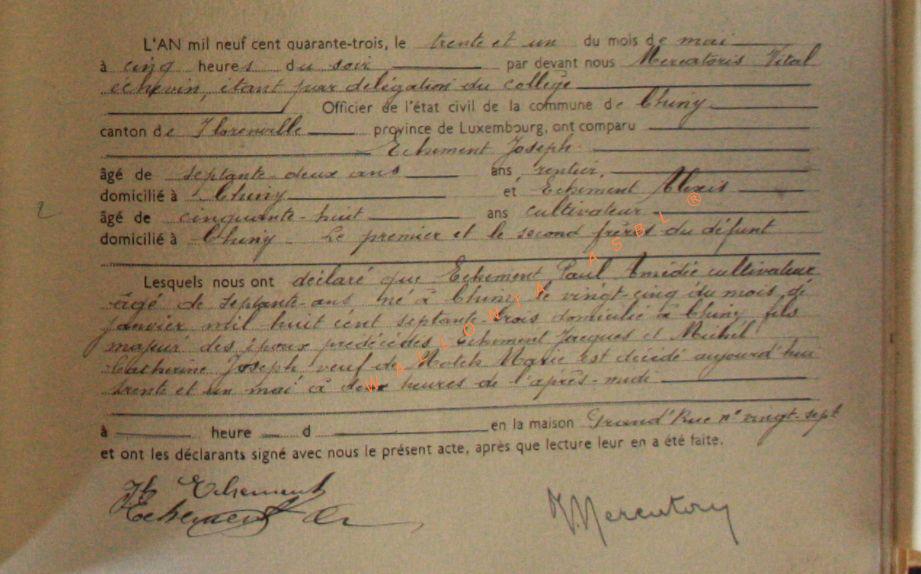 L'AN mil neuf cent quarante-trois, le trente et un du mois de mai
à cinq heures du soir par devant nous Mercatoris Vital
échevin, étant par délégation du collège
Officier de l'état civil de la commune de Chiny
canton de Florenville province de Luxembourg, ont comparu
Echement Joseph
âgé de septante-deux ans ans, rentier,
domicilié à Chiny et Echement Alexis
âgé de cinquante-huit ans cultivateur
domicilié à Chiny Le premier et le second frères du défunt
2
Lesquels nous ont déclaré que Echement Paul Amédée cultivateur
âgé de septante-ans né à Chiny le vingt-cinq du mois de
janvier mil huit cent septante-trois domicilié à Chiny fils
majeur des époux prédécédés Echement Jacques et Michel
Catherine Joseph veuf de Marie est décédé aujourd'hui
trente et un mai à deux heures de l'après-midi
à heure d en la maison Grand'Rue n° vingt-sept
et ont les déclarants signé avec nous le présent acte, après que lecture leur en a été faite.
Echement
Echement
V. Mercatoris
WALLONIA ASBL ®